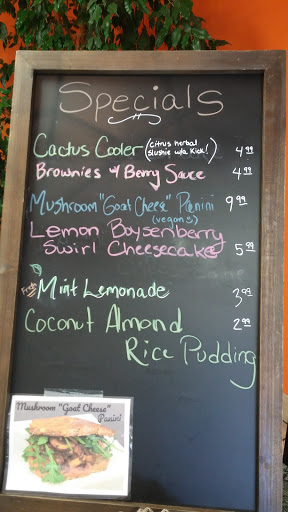 Specials
Cactus Cooler (citrus herbal
slushie w/a Kick!) 4.99
Brownies & Berry Sauce 4.99
Mushroom "Goat Cheese" Panini 9.99
(vegans)
Lemon Boysenberry
Swirl Cheesecake 5.99
Fresh Mint Lemonade 3.99
Coconut Almond 2.99
Rice Pudding
Mushroom "Goat Cheese"
Panini